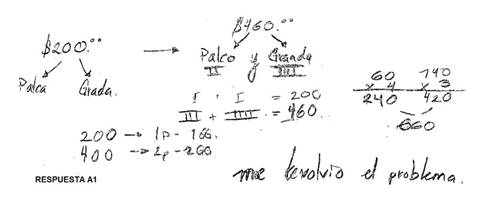 $460.⁰⁰
$200.⁰⁰ → Palco y Granda
II IIII
Palca Grada.
I · I = 200
III + IIIII = 460
60 140
x 4 x 3
240 420
660
200 → 1p - 1GG.
400 → 2p - 2GG
RESPUESTA A1
me devolvio el problema.